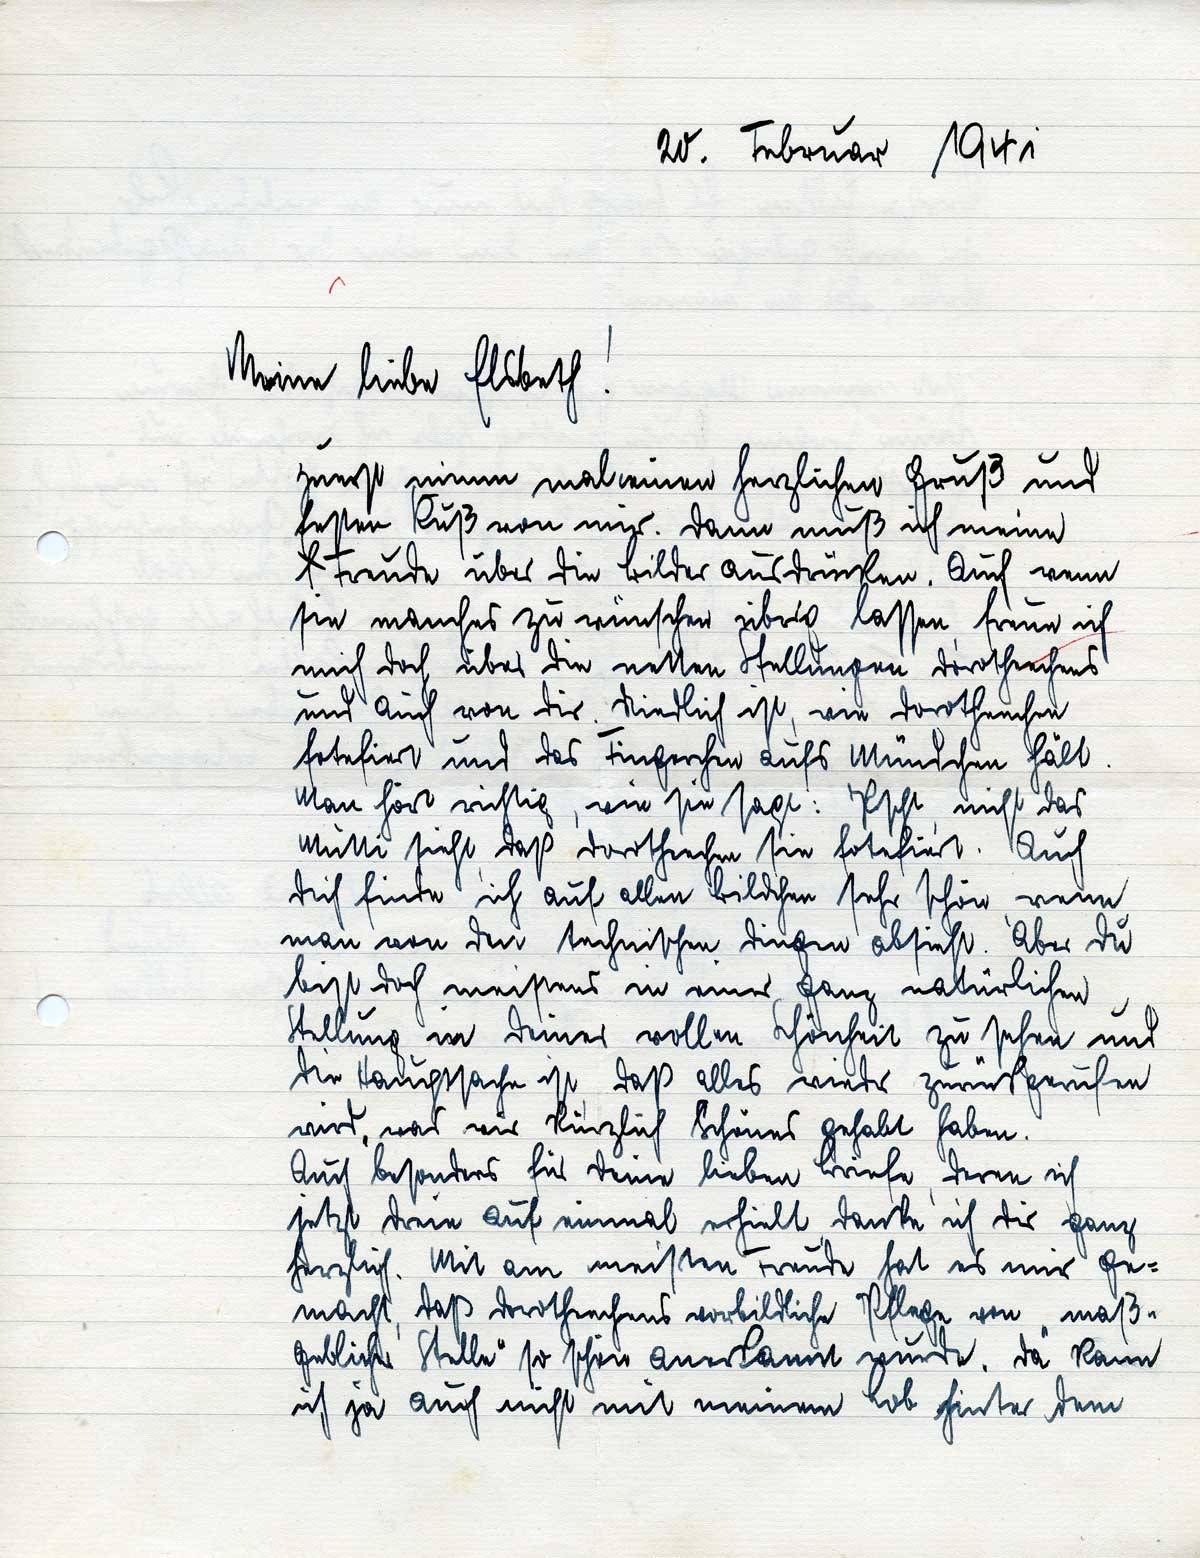 20. Februar 1941
Meine liebe Elsbeth!
Zuerst nimm mal einen herzlichen Gruß und
festen Kuß von mir. Dann muß ich meine
Freude über die Bilder ausdrücken. Auch wenn
sie manches zu wünschen übrig lassen, freue ich
mich doch über die netten Stellungen Dorotheechens
und auch von Dir. Niedlich ist, wie Dorotheechen
fotefiert und das Fingerchen aufs Mündchen hält.
Man hört richtig, wie sie sagt: Pscht, nicht das
Mutti sieht, daß Dorotheechen sie fotefiert. Auch
Dich finde ich auf allen Bildchen sehr schön, wenn
man von den technischen Dingen absieht. Aber Du
bist doch meistens in einer ganz natürlichen
Stellung in Deiner vollen Schönheit zu sehen und
die Hauptsache ist, daß alles wieder zurückgerufen
wird, was wir kürzlich Schönes gehabt haben.
Auch besonders für Deine lieben Briefe, deren ich
jetzt dreie auf einmal erhielt, danke ich Dir ganz
herzlich. Mit am meisten Freude hat es mir ge=
macht, daß Dorotheechens vorbildliche Pflege von „maß-
geblicher Stelle“ so schön anerkannt wurde. Da kann
ich ja auch nicht mit meinem Lob hinter dem